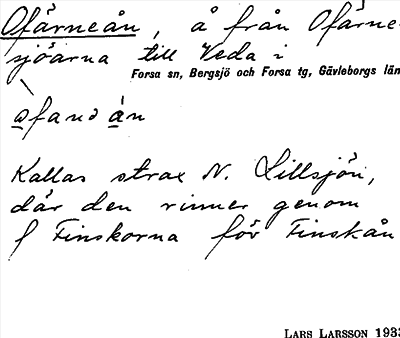 Ofärneån, å från Ofärne-
sjöarna till Veda i
Forsa sn, Bergsjö och Forsa tg, Gävleborgs län
Kallas strax N. Lillsjön,
där den rinner genom
f Finskorna för Finskån
LARS LARSSON 1933